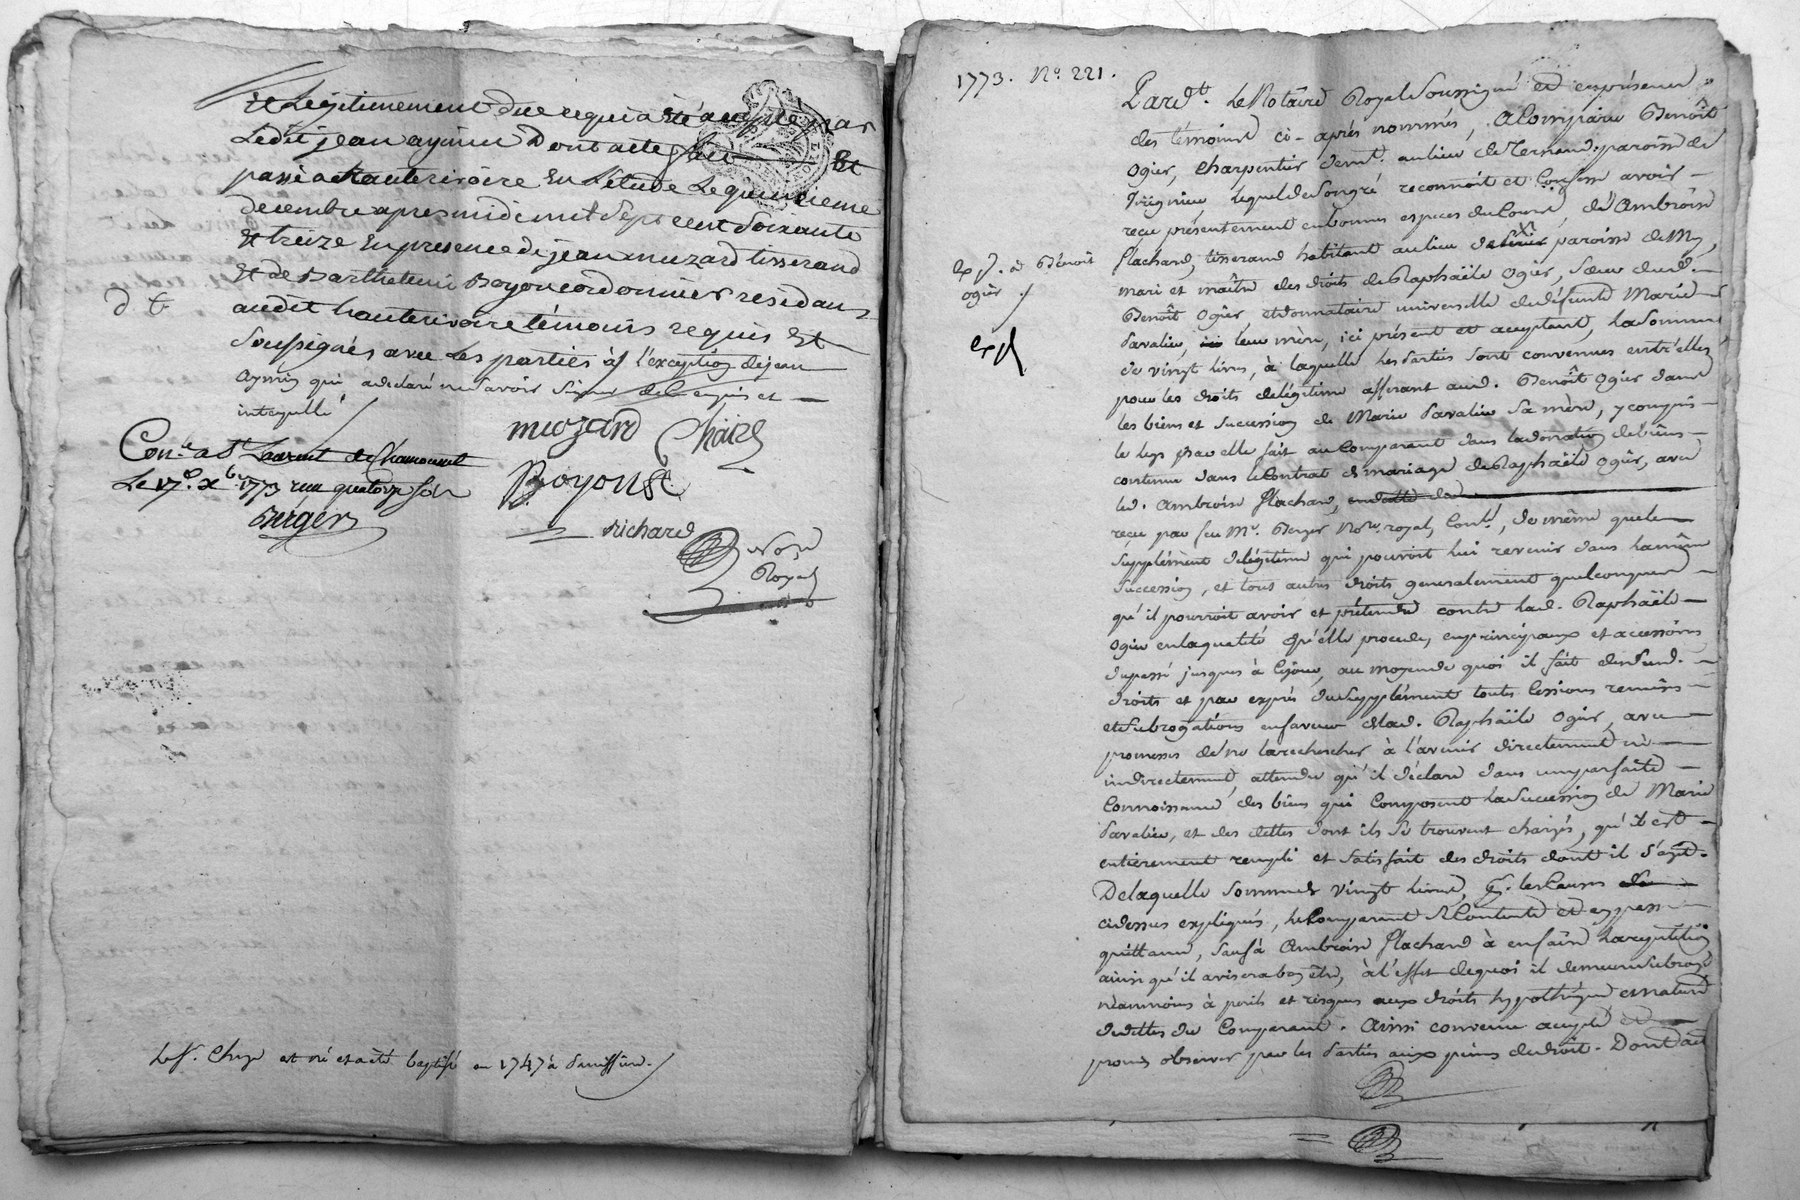 et Legitimement due ce qui a été accepté par
Ledit jean aymin Dont acte fait Et
passé a hauterivoire En L'étude Le quinzieme
decembre apres midi mil Sept cent Soixante
et treize En presence de jean muzard tisserand
Et de Barthelemi Boyon cordonnier residans
audit hauterivoire témoins requis Et
Soussignés avec Les parties à l'exception dejean
Aymin qui a declaré ne Savoir Signer de ce enquis et
interpellé
muzard Chaize
Con.le a St Laurent de Chamousset
Le 17e xbre 1773 reçu quatorze sols
Boyon
Berger
Richard
Nore
Royal
Le Sr. Chize est né et a été baptisé en 1747 à
1773. No. 221.
Pardt. Le Notaire Royal Soussigné et en présence
des témoins ci-après nommés, a Comparu Benoît
Ogier, Charpentier demt. au lieu de Ternand, paroisse de
Virignieu lequel de Son gré reconnoit et Confesse avoir
reçu présentement en bonnes especes du Cours, d'Ambroise
flachard, tisserand habitant au lieu paroisse de
mari et maître des droits de Raphaële Ogier, Sœur dud.
exp. à Benoît
ogier
Benoît Ogier, et donnataire universelle de défunte Marie
leur mère, ici présent et acceptant, la Somme
exp
de vingt livres, à laquelle les Parties Sont convenues entr'elles
pour les droits de légitime afférant aud. Benoît Ogier dans
les biens et Succession de Marie Sa mère, y compris
le legs par elle fait au Comparant dans la donation de biens
contenue dans le Contrat de mariage de Raphaële Ogier, avec
led. Ambroise flachard,
reçu par feu Me. Berger Nore royal, Conlé, de même que le
Supplément de légitime qui pouvoit lui revenir dans la même
Succession, et tous autres droits generalement quelconques
qu'il pourroit avoir et prétendre contre lad. Raphaële
Ogier en la qualité qu'elle procede, en principaux et accessoires
du passé jusques à ce jour, au moyen de quoi il fait desdits
droits et par exprès du Supplément toutes Cessions remises
et Subrogations en faveur de lad. Raphaële Ogier, avec
promesses de ne la rechercher à l'avenir directement ni
indirectement, attendu qu'il déclare dans une parfaite
Connoissance des biens qui Composent la Succession de Marie
et des dettes dont ils Se trouvent chargés, qu'il est
entierement rempli et Satisfait des droits dont il S'agit.
De laquelle Somme de vingt livres, p. les Causes
cidessus expliqués, le Comparant Se Contente et en passe
quittance, Sauf à Ambroise flachard à en faire la répétition
ainsi qu'il avisera bon être, à l'effet de quoi il demeure Subrogé
néanmoins à perils et risques aux droits hypothèque et nature
de dettes du Comparant. Ainsi convenu accepté et
promis observer par les Parties aux peines de droit. Dont acte